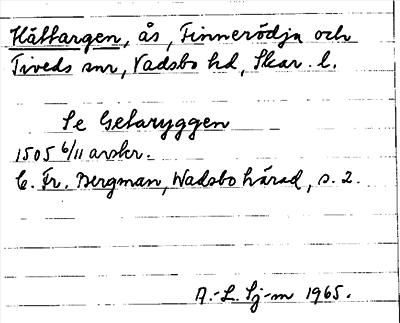 Håltargen, ås, Finnerödja och
Tiveds snr, Vadsbo hd, Skar. l.
Se Getaryggen
1505 6/11 avskr.
C. Fr. Bergman, Wadsbo härad, s. 2.
A.-L. Sj-m 1965.